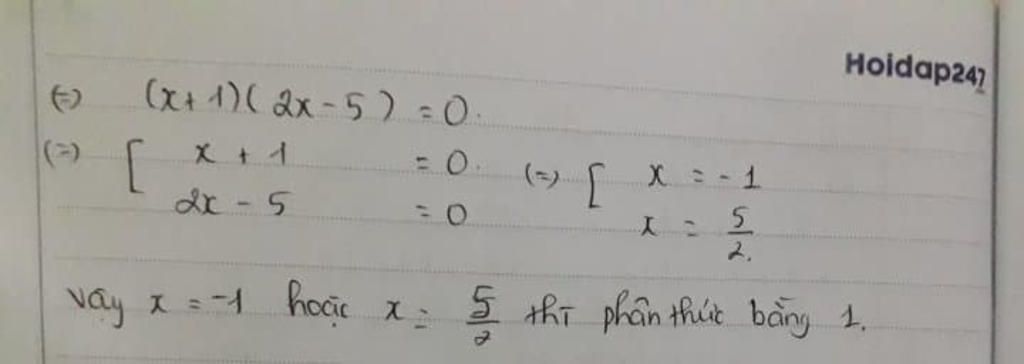 Hoidap247
(=) (x+1)(2x-5) = 0.
(=) [ x + 1 = 0. (=) [ x = -1
2x - 5 = 0 x = 5/2.
vậy x = -1 hoặc x = 5/2 thì phân thức bằng 1.